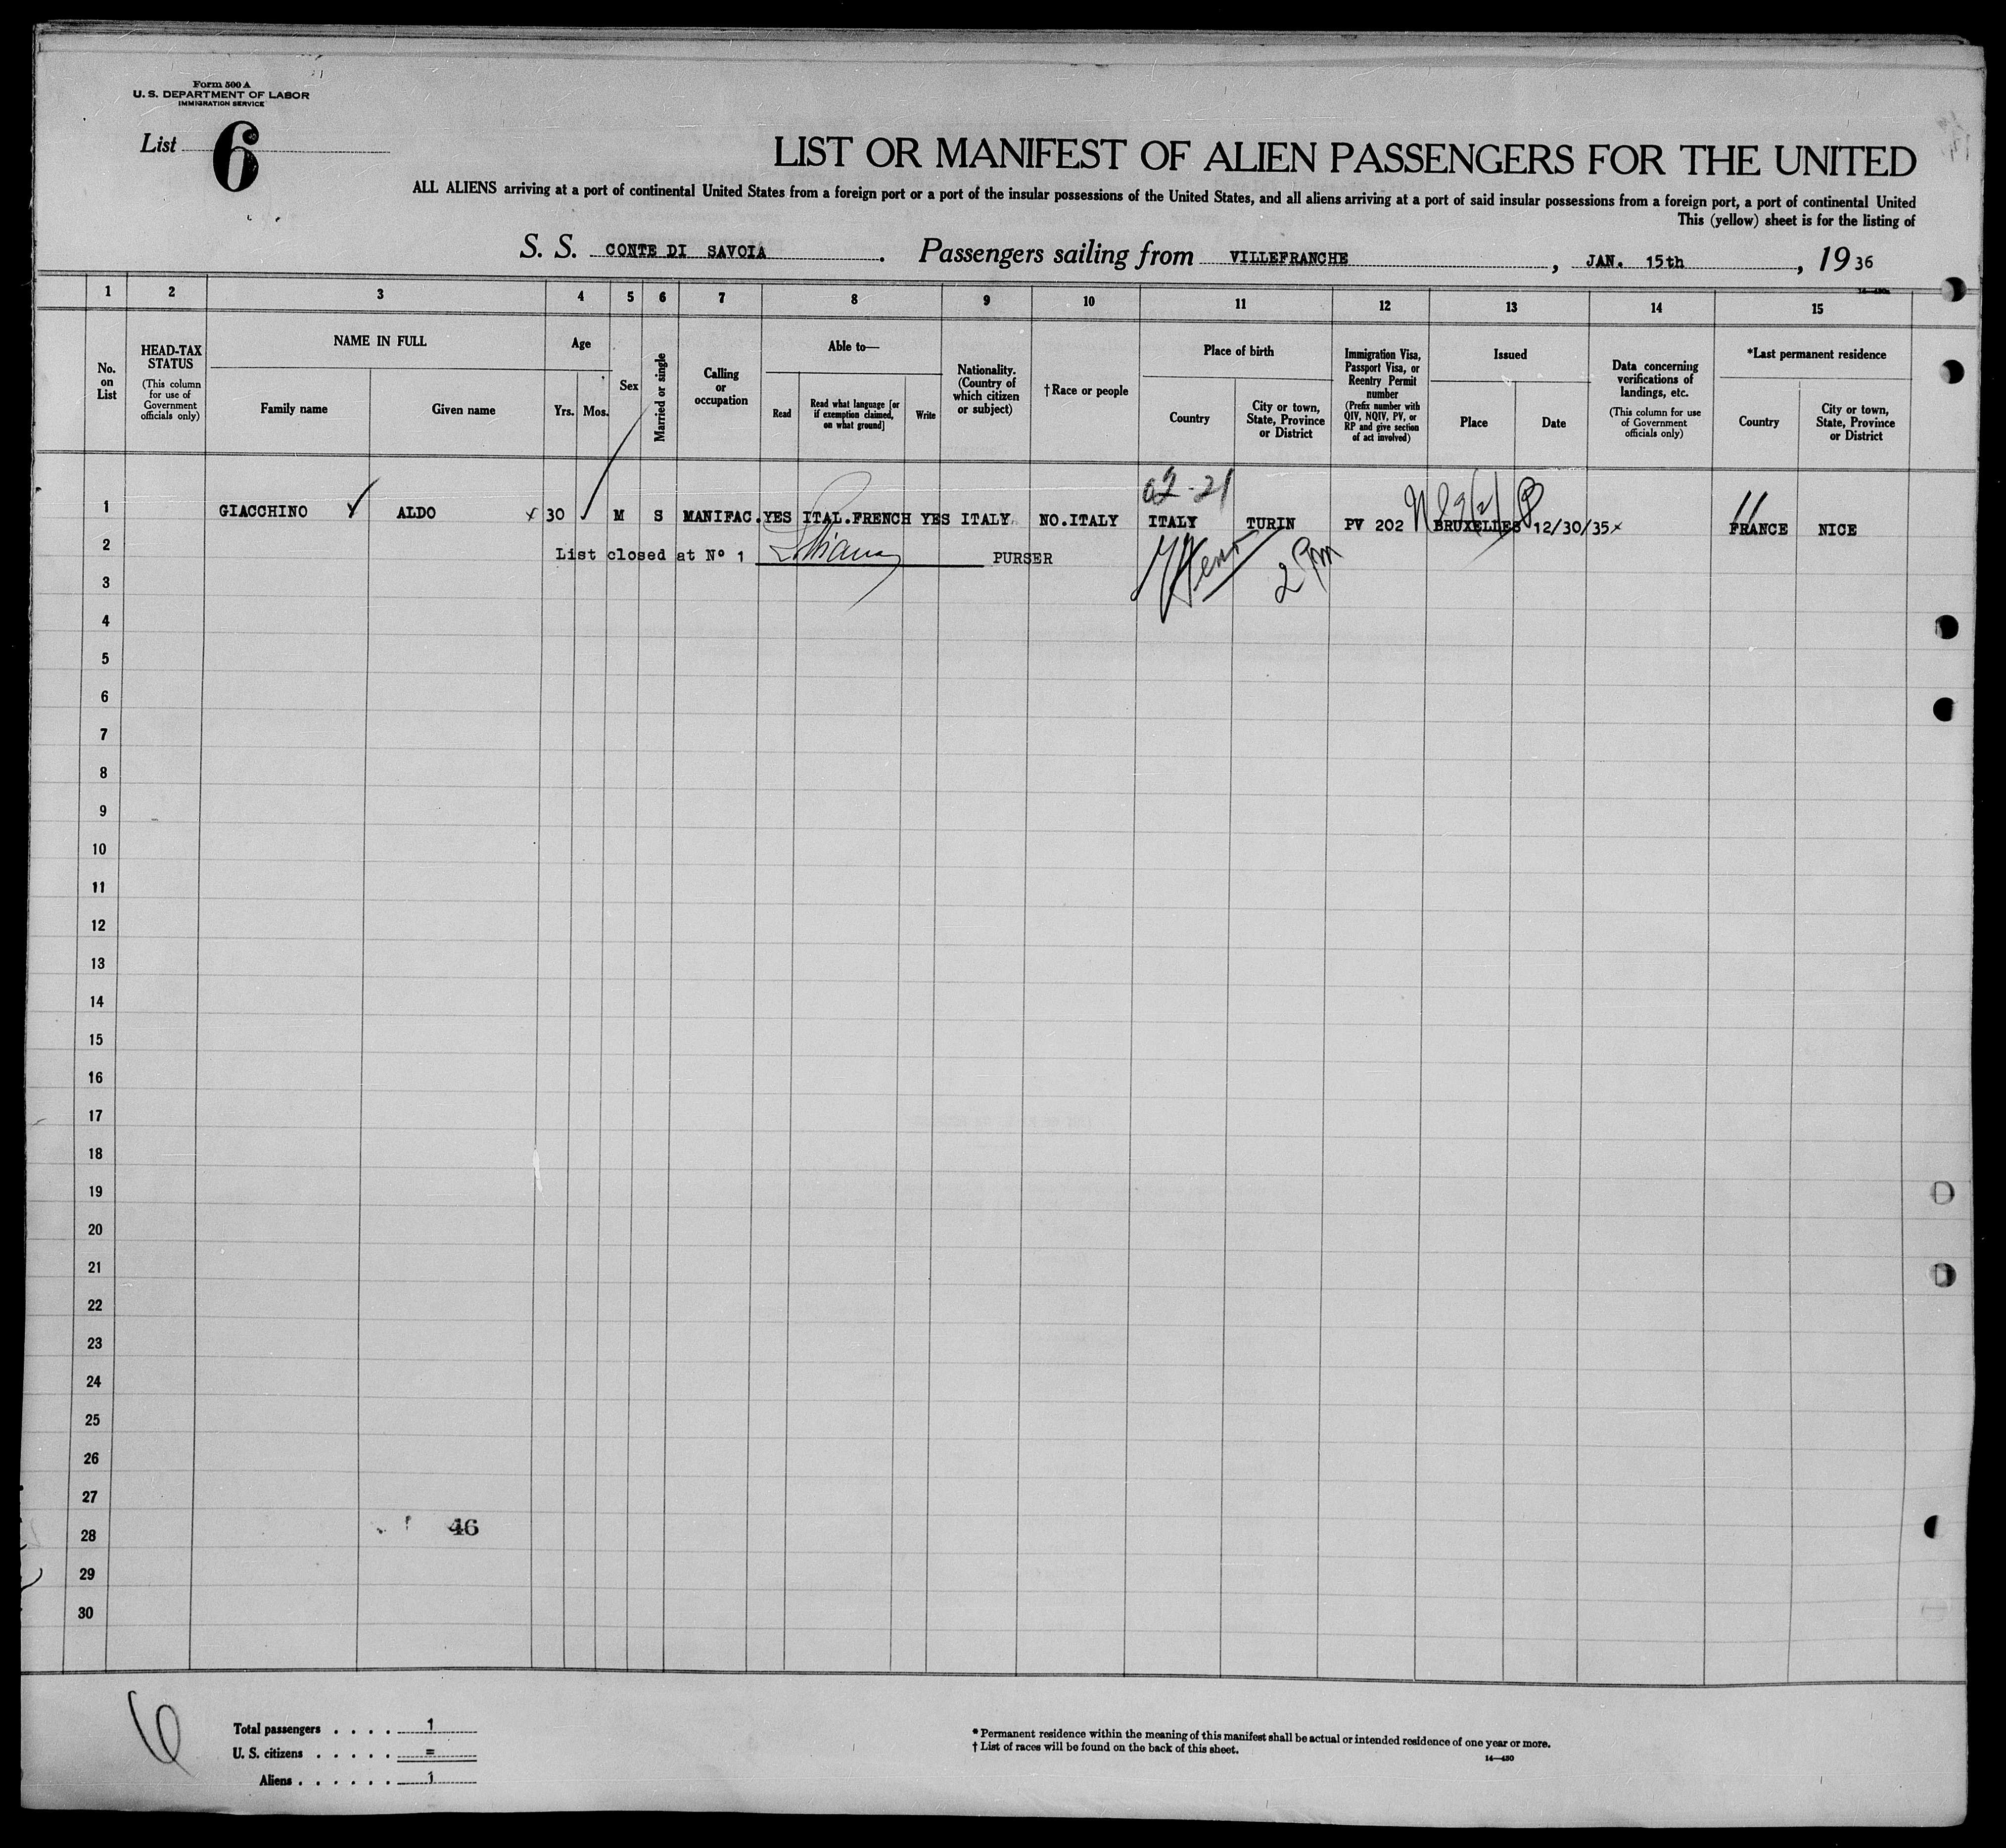 Form 500 A
U. S. DEPARTMENT OF LABOR
IMMIGRATION SERVICE
List 6
LIST OR MANIFEST OF ALIEN PASSENGERS FOR THE UNITED
ALL ALIENS arriving at a port of continental United States from a foreign port or a port of the insular possessions of the United States, and all aliens arriving at a port of said insular possessions from a foreign port, a port of continental United
This (yellow) sheet is for the listing of
S. S. CONTE DI SAVOIA . Passengers sailing from VILLEFRANCHE , JAN. 15th , 19 36
1 2 3 4 5 6 7 8 9 10 11 12 13 14 15
No. on List
HEAD-TAX STATUS
(This column for use of Government officials only)
NAME IN FULL
Family name Given name
Age
Yrs. Mos.
Sex
Married or single
Calling or occupation
Able to—
Read
Read what language [or if exemption claimed, on what ground]
Write
Nationality. (Country of which citizen or subject)
†Race or people
Place of birth
Country
City or town, State, Province or District
Immigration Visa, Passport Visa, or Reentry Permit number
(Prefix number with QIV, NQIV, PV, or RP and give section of act involved)
Issued
Place Date
Data concerning verifications of landings, etc.
(This column for use of Government officials only)
*Last permanent residence
Country
City or town, State, Province or District
02-21
1 GIACCHINO ALDO 30 M S MANIFAC. YES ITAL.FRENCH YES ITALY NO.ITALY ITALY TURIN PV 202 BRUXELLES 12/30/35 FRANCE NICE
2 List closed at Nº 1 PURSER
2 Pm
3
4
5
6
7
8
9
10
11
12
13
14
15
16
17
18
19
20
21
22
23
24
25
26
27
28 46
29
30
6
Total passengers . . . . 1
U. S. citizens . . . . . =
Aliens . . . . . . 1
* Permanent residence within the meaning of this manifest shall be actual or intended residence of one year or more.
† List of races will be found on the back of this sheet.
14—430